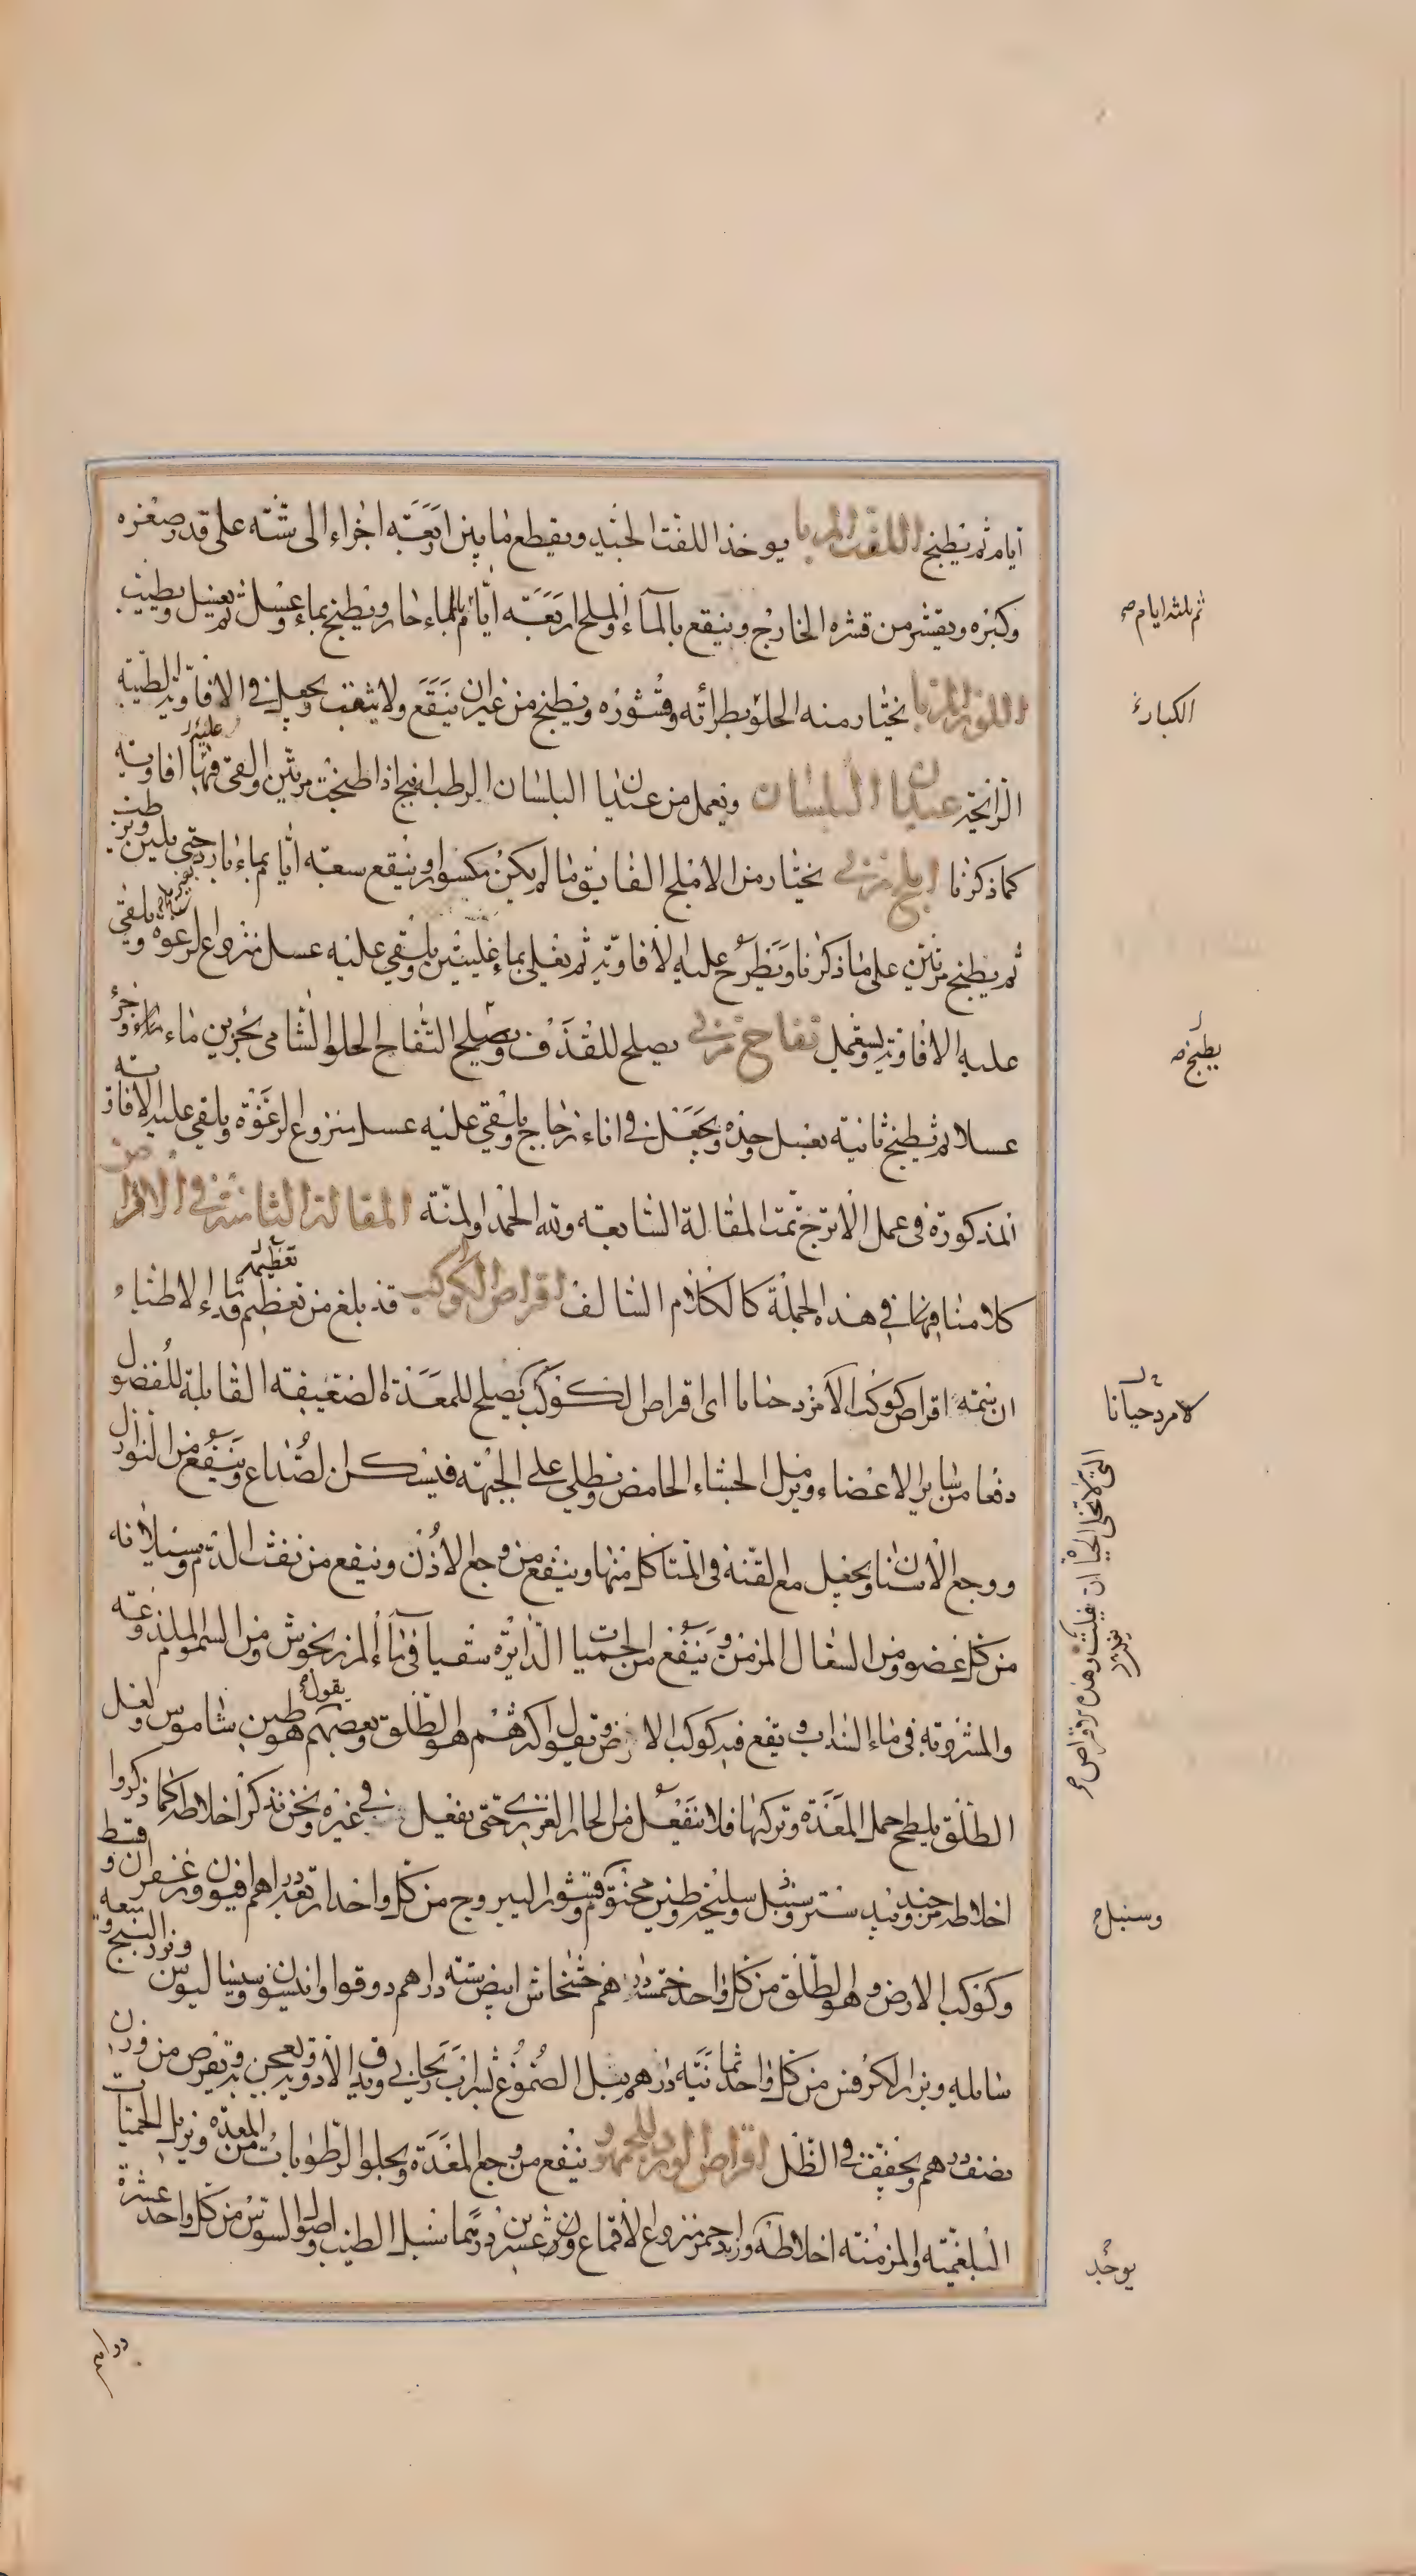 ايام ثم يطبخ اللفت المربا يوخذ اللفت الجيد ويقطع ما بين اربعة اجزاء الى ستة على قدر صغره
وكبره ويقشر من قشره الخارج وينقع بالماء والملح اربعة ايام بالماء حار ويطبخ بماء وعسل ثم يغسل ويطيب
ثم بلثه ايام صح
اللوز المربا يختار منه الحلو بطرائه وقشوره ويطبخ من غير ان ينقع ولا يثقب ويجعل في الافاويه الطيبه
الكبار
الرائحة عيدان البلسان ويعمل من عيدان البلسان الرطبه اذا طبخت مرتين والقى فيها افاويه
عليه
كما ذكرنا املج مربى يختار من الاملج الفايق ما لم يكن مكسورا وينقع سعة ايام بماء بارد حتى يلين
ثم يطبخ مرتين على ما ذكرنا ويطرح عليه الافاويه ثم يغلى بماء غليتين ويلقي عليه عسل منزوع الرغوة ويلقى
عليه الافاويه ويستعمل تفاح مربى يصلح للقذف ويصلح التفاح الحلو الشامى بجزين ماء وجزء
يطبخ صح
عسلا ثم يطبخ ثانية بعسل وحده ويجعل في اناء زجاج ويلقي عليه عسل منزوع الرغوة ويلقى عليه الافاويه
المذكورة في عمل الاترج تمت المقالة السابعة ولله الحمد والمنة المقالة الثامنة في الاقراص
كلامنا فيها في هذه الجملة كالكلام السالف اقراص الكوكب قد بلغ من تعظيم قدماء الاطباء
تعظيم
ان يسمه اقراص كوكب الامرد حناما اى اقراص الكوكب يصلح للمعدة الضعيفة القابلة للفضول
لامردحيانا
دفعا من ساير الاعضاء ويزيل الجشاء الحامض وتطلى على الجبهة فيسكن الصداع وينفع من النوازل
ووجع الاسنان ويجعل مع القنه في المتاكل منها وينفع من وجع الاذن وينفع من نفث الدم وسيلانه
من كل عضو ومن السعال المزمن وينفع من الحميات الدايرة سقيا في ماء المرزنجوش ومن السموم الملذوعة
والمشروبة في ماء السذاب ويقع فيه كوكب الارض ويقول اكثرهم هو الطلق وبعضهم هو طين شاموس ولعل
يقول
الطلق يلطخ حمل المعدة وتركها فلا ينفعل من الحار الغريزي حتى يفعل في غيره ونحن نذكر اخلاطه كما ذكروا
اخلاطه جندبيدستر وسنبل وسليخه وطين مختوم وقشور اليبروج من كل واحد اربعة دراهم افيون وزعفران وقسط
وسنبل
وكوكب الارض وهو الطلق من كل واحد خمسة دراهم خشخاش ابيض ستة دراهم دوقوا وانيسون وسيساليوس وبزر البنج
سايله وبزر الكرفس من كل واحد ثمانية دراهم يبل الصموغ بشراب ريحاني ويدق الادوية ويعجن به ويقرص من وزن
نصف درهم ويجفف في الظل اقراص الورد للجمهور ينفع من وجع المعدة ويجلو الرطوبات من المعدة ويزيل الحميات
البلغمية والمزمنة اخلاطه ورد احمر منزوع الاقماع وزن عشرين درهما سنبل الطيب واصول السوس من كل واحد عشرة
يوخذ
دراهم